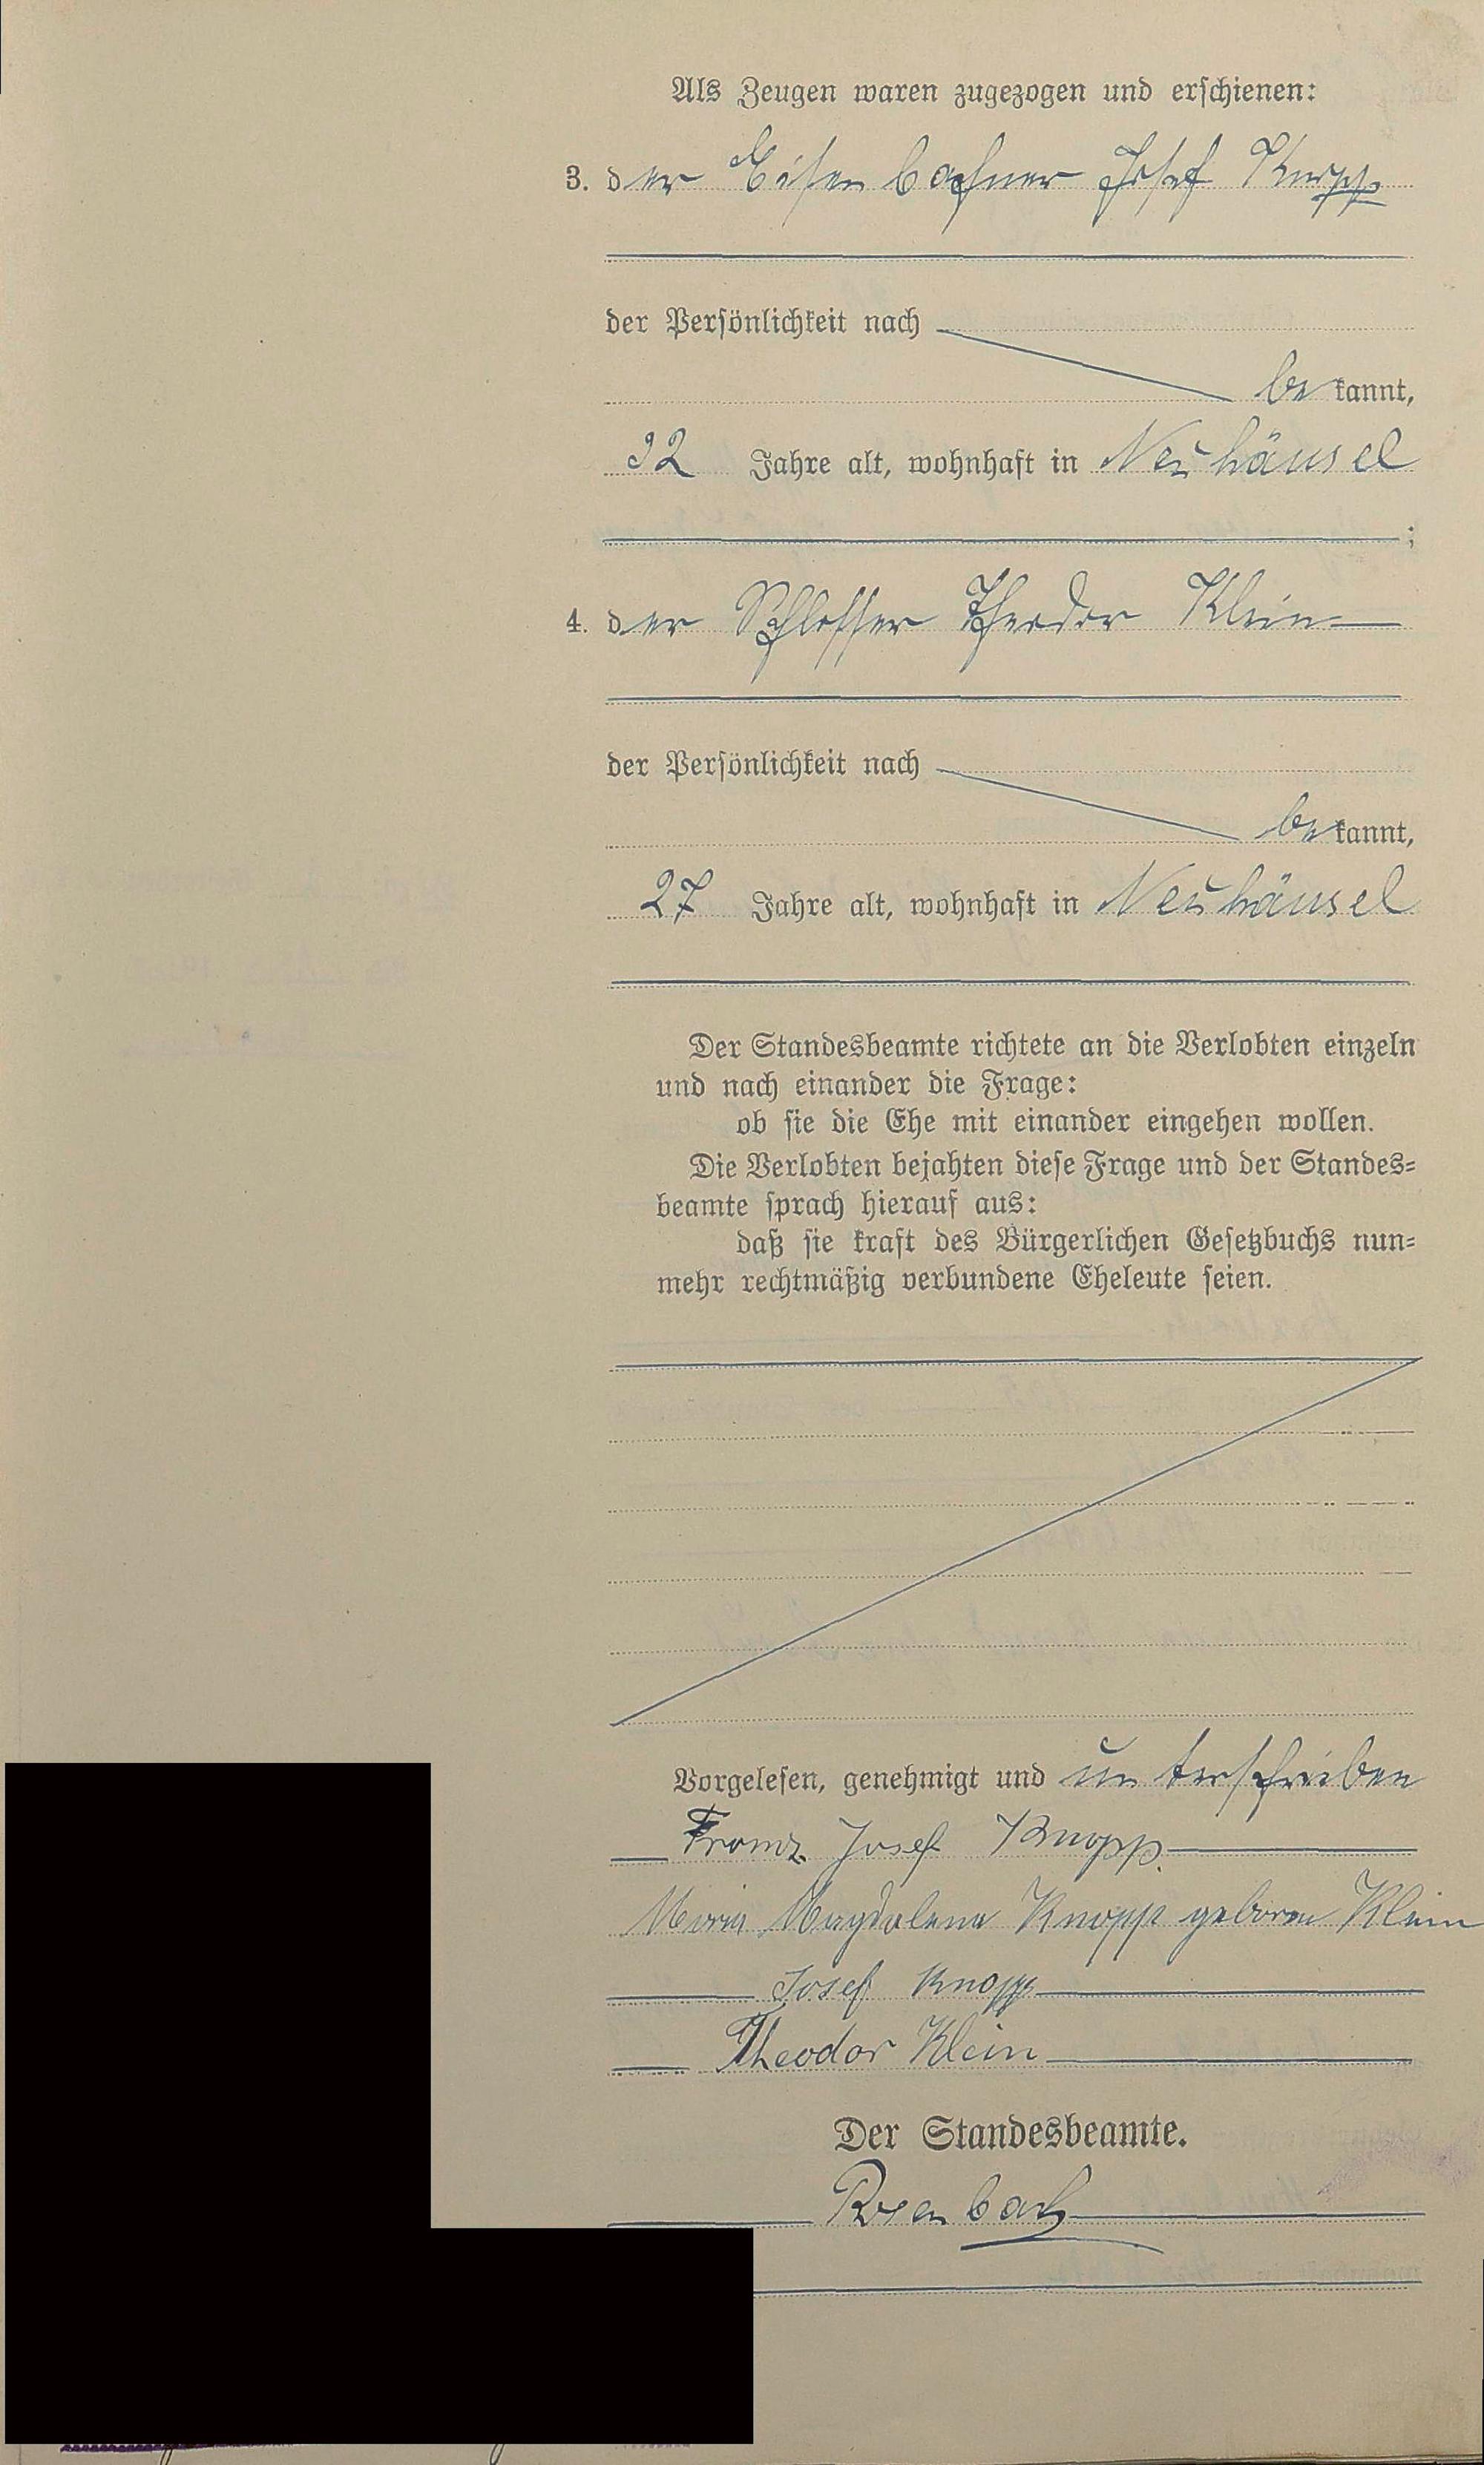 Als Zeugen waren zugezogen und erschienen:
3. der Eisenbahner Josef Knopp
der Persönlichkeit nach
be kannt,
32 Jahre alt, wohnhaft in Neuhäusel
;
4. der Schlosser Theodor Klein
der Persönlichkeit nach
be kannt,
27 Jahre alt, wohnhaft in Neuhäusel
Der Standesbeamte richtete an die Verlobten einzeln
und nach einander die Frage:
ob sie die Ehe mit einander eingehen wollen.
Die Verlobten bejahten diese Frage und der Standes=
beamte sprach hierauf aus:
daß sie kraft des Bürgerlichen Gesetzbuchs nun=
mehr rechtmäßig verbundene Eheleute seien.
Vorgelesen, genehmigt und unterschrieben
Franz Josef Knopp.
Maria Magdalena Knopp geboren Klein
Josef Knopp
Theodor Klein
Der Standesbeamte.
Rosenbach